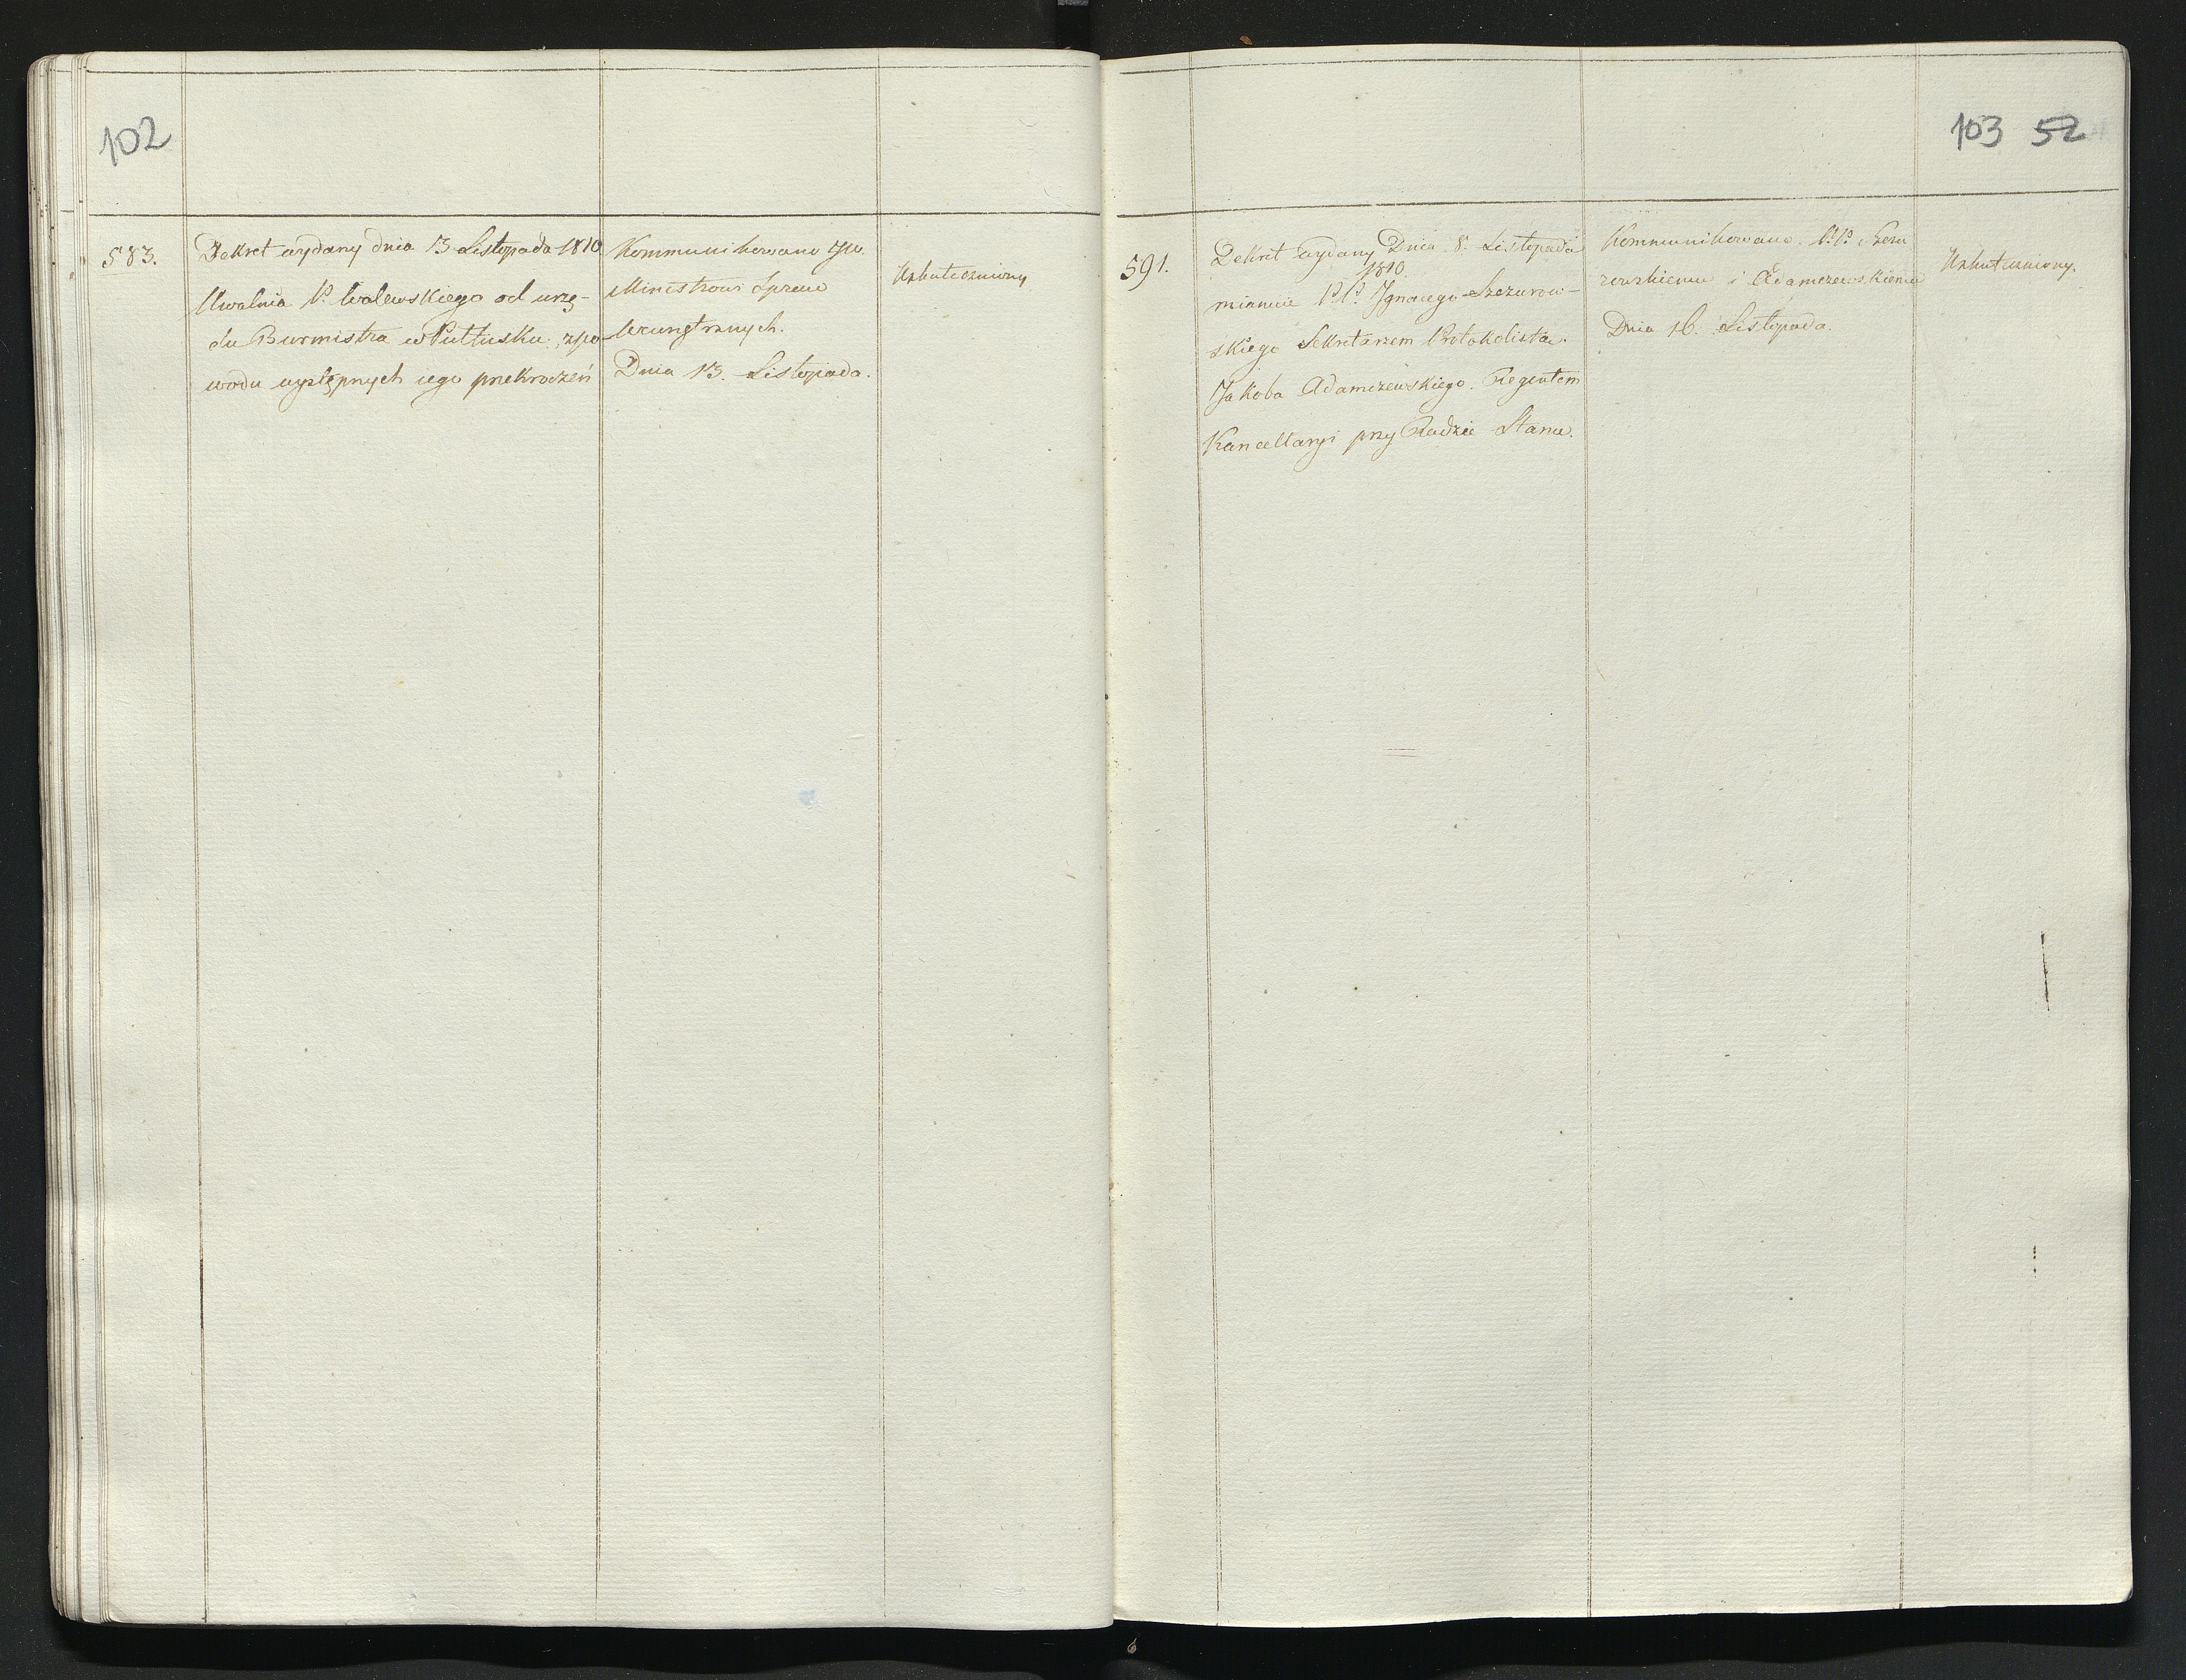 102
583.
Dekret wydany dnia 13 Listopada 1810
Uwalnia P. Walewskiego od urzę-
du Burmistra w Pułtusku, zpo-
wodu występnych iego przekroczeń
Kommunikowano JW.
Ministrowi Spraw
Wewnętrznych.
Dnia 13. Listopada.
Uskuteczniony
103 52
591.
Dekret wydany Dnia 8. Listopada
1810.
mianuie P.P. Ignacego Szczurow-
skiego Sekretarzem Protokolistą.
Jakoba Adamczewskiego. Regentem
Kancellaryi przy Radzie Stanu.
Kommunikowano. P.P. Szczu
rowskiemu i Adamczewskiemu
Dnia 16. Listopada.
Uskuteczniony.